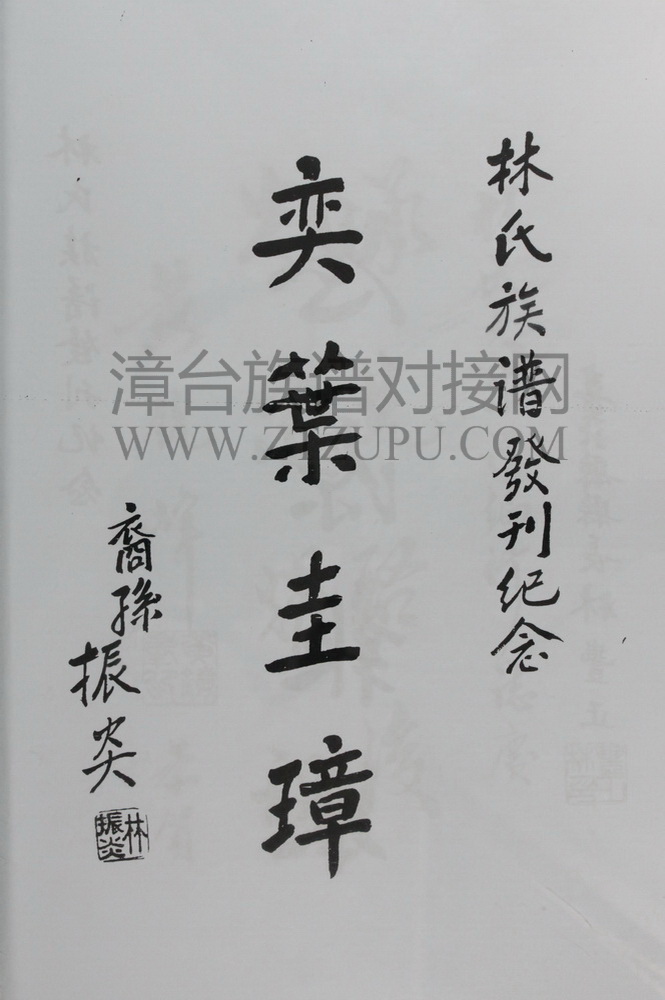 林氏族譜發刊纪念
奕葉圭璋
裔孫振炎
林振炎
漳台族谱对接网
WWW.ZTZUPU.COM